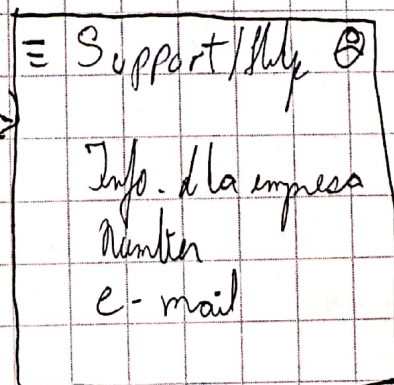 Support/Help
Info. d la empresa
Number
e-mail